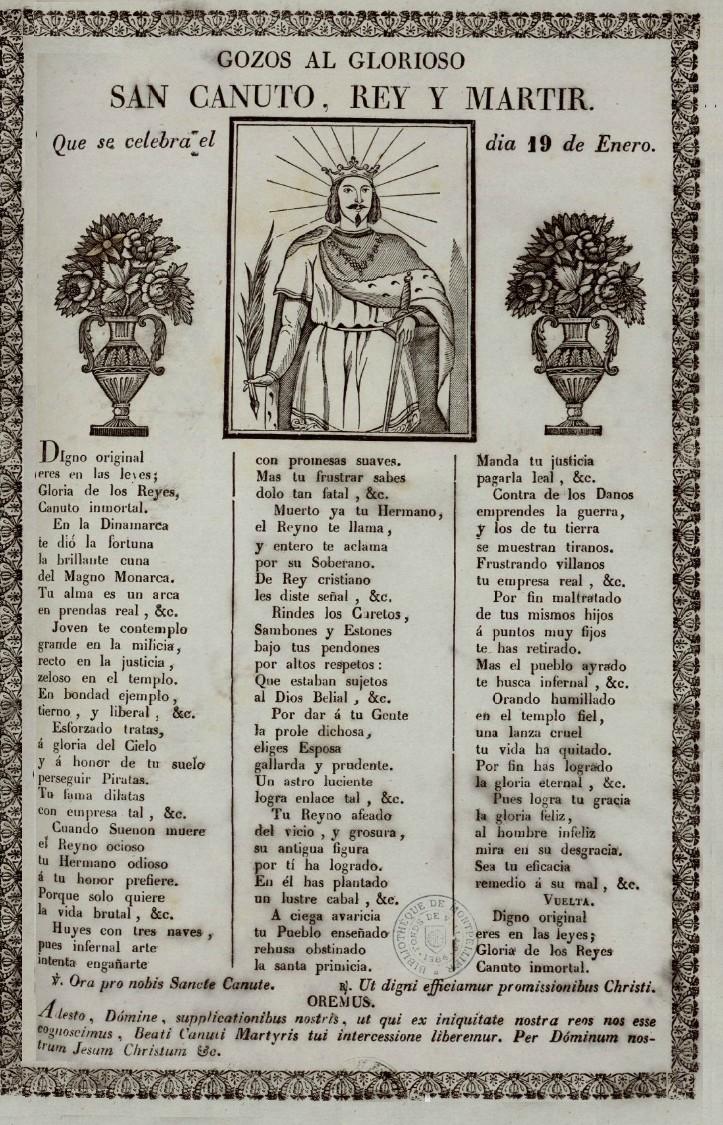 GOZOS AL GLORIOSO
SAN CANUTO, REY Y MARTIR.
Que se celebra el dia 19 de Enero.
Digno original
eres en las leyes;
Gloria de los Reyes,
Canuto inmortal.
En la Dinamarca
te dió la fortuna
la brillante cuna
del Magno Monarca.
Tu alma es un arca
en prendas real, &c.
Joven te contemplo
grande en la milicia,
recto en la justicia,
zeloso en el templo.
En bondad ejemplo,
tierno, y liberal, &c.
Esforzado tratas,
á gloria del Cielo
y á honor de tu suelo
perseguir Piratas.
Tu fama dilatas
con empresa tal, &c.
Cuando Suenon muere
el Reyno ocioso
tu Hermano odioso
á tu honor prefiere.
Porque solo quiere
la vida brutal, &c.
Huyes con tres naves,
pues infernal arte
intenta engañarte
con promesas suaves.
Mas tu frustrar sabes
dolo tan fatal, &c.
Muerto ya tu Hermano,
el Reyno te llama,
y entero te aclama
por su Soberano.
De Rey cristiano
les diste señal, &c.
Rindes los Curetos,
Sambones y Estones
bajo tus pendones
por altos respetos:
Que estaban sujetos
al Dios Belial, &c.
Por dar á tu Gente
la prole dichosa,
eliges Esposa
gallarda y prudente.
Un astro luciente
logra enlace tal, &c.
Tu Reyno afeado
del vicio, y grosura,
su antigua figura
por tí ha logrado.
En él has plantado
un lustre cabal, &c.
A ciega avaricia
tu Pueblo enseñado
rehusa obstinado
la santa primicia.
Manda tu justicia
pagarla leal, &c.
Contra de los Danos
emprendes la guerra,
y los de tu tierra
se muestran tiranos.
Frustrando villanos
tu empresa real, &c.
Por fin maltratado
de tus mismos hijos
á puntos muy fijos
te has retirado.
Mas el pueblo ayrado
te busca infernal, &c.
Orando humillado
en el templo fiel,
una lanza cruel
tu vida ha quitado.
Por fin has logrado
la gloria eternal, &c.
Pues logra tu gracia
la gloria feliz,
al hombre infeliz
mira en su desgracia.
Sea tu eficacia
remedio á su mal, &c.
VUELTA.
Digno original
eres en las leyes;
Gloria de los Reyes
Canuto inmortal.
℣. Ora pro nobis Sancte Canute. ℟. Ut digni efficiamur promissionibus Christi.
OREMUS.
Adesto, Dómine, supplicationibus nostris, ut qui ex iniquitate nostra reos nos esse
cognoscimus, Beati Canuti Martyris tui intercessione liberemur. Per Dóminum nos-
trum Jesum Christum &c.
BIBLIOTHEQUE DE MONTPELLIER